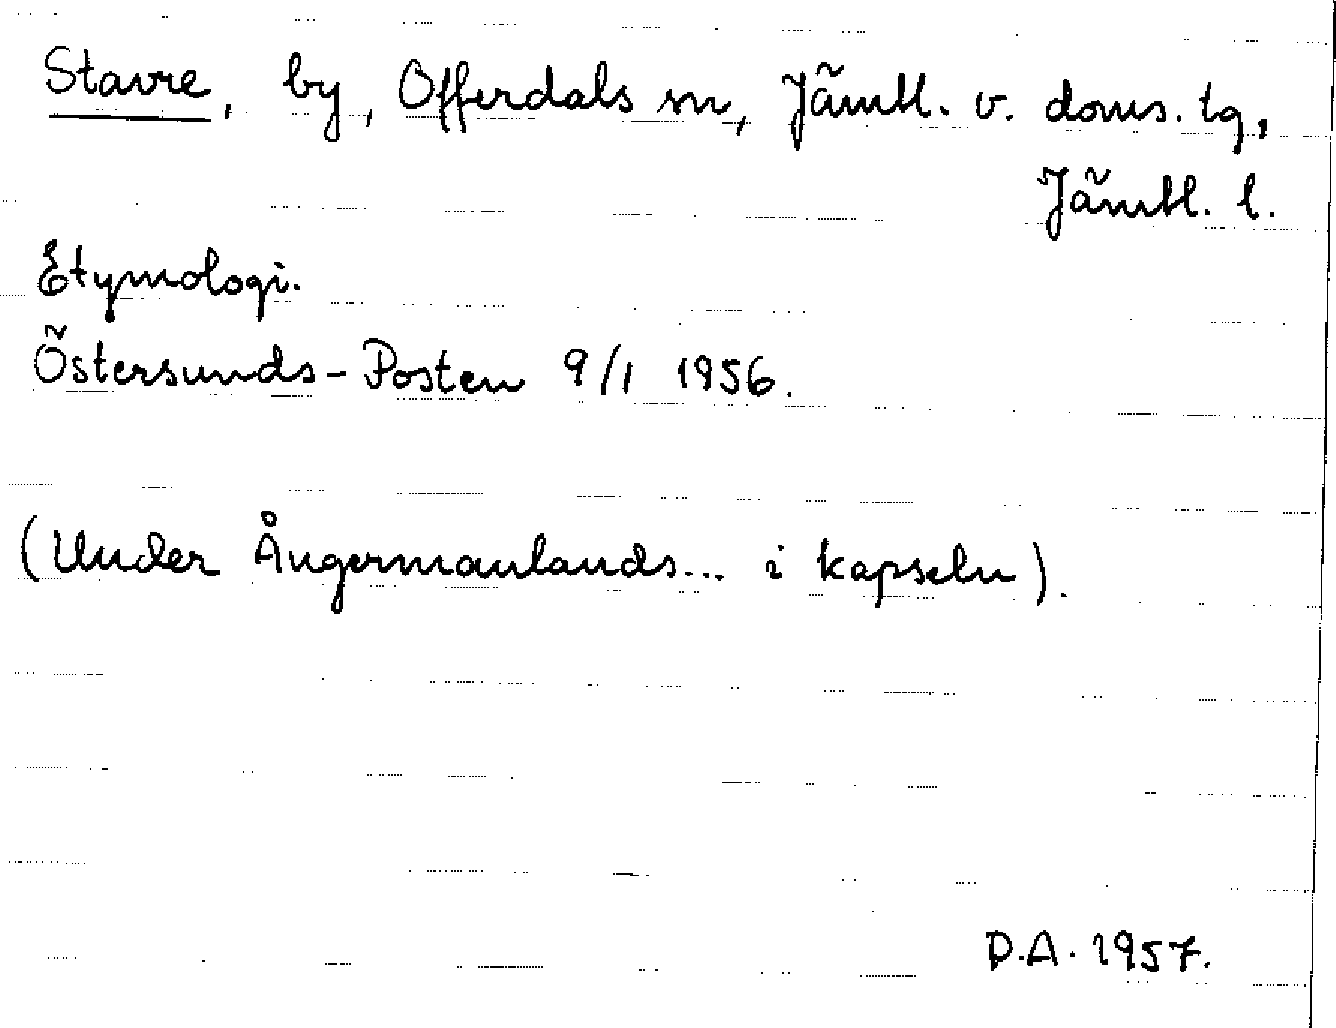 Stavre, by, Offerdals sn, Jämtl. v. doms. tg,
Jämtl. l.
Etymologi.
Östersunds-Posten 9/1 1956.
(Under Ångermanlands... i kapseln).
D.A. 1957.